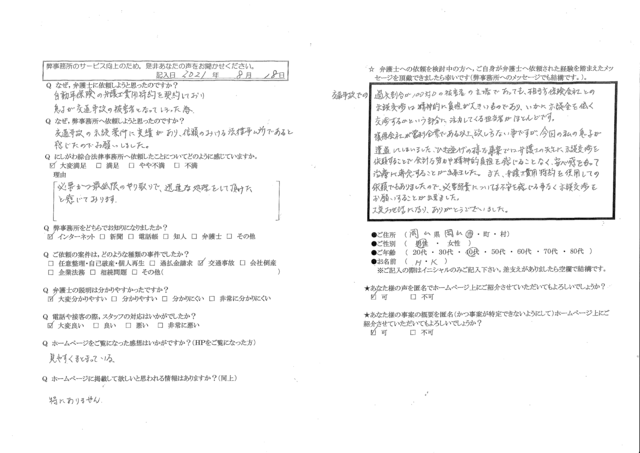 弊事務所のサービス向上のため、是非あなたの声をお聞かせください。
記入日 2021 年 8 月 18 日
Q なぜ、弁護士に依頼しようと思ったのですか?
自動車保険の弁護士費用特約を契約しており
息子が交通事故の被害者となってしまった為
Q なぜ、弊事務所へ依頼しようと思ったのですか?
交通事故の示談案件に実績があり、信頼のおける法律事ム所であると
感じたのでお願いしました。
Q にしがわ総合法律事務所へ依頼したことについてどのように感じていますか。
☑ 大変満足 □ 満足 □ やや不満 □ 不満
理由
必要かつ最低限のやり取りで、迅速な処理をして頂けた
と感じております。
Q 弊事務所をどちらでお知りになりましたか?
☑ インターネット □ 新聞 □ 電話帳 □ 知人 □ 弁護士 □ その他
Q ご依頼の案件は、どのような種類の事件でしたか?
□ 任意整理・自己破産・個人再生 □ 過払金請求 ☑ 交通事故 □ 会社倒産
□ 企業法務 □ 相続問題 □ その他( )
Q 弁護士の説明は分かりやすかったですか?
☑ 大変分かりやすい □ 分かりやすい □ 分かりにくい □ 非常に分かりにくい
Q 電話や接客の際、スタッフの対応はいかがでしたか?
☑ 大変良い □ 良い □ 悪い □ 非常に悪い
Q ホームページをご覧になった感想はいかがですか?(HPをご覧になった方)
見やすくまとまっている。
Q ホームページに掲載して欲しいと思われる情報はありますか?(同上)
特にありません
☆ 弁護士への依頼を検討中の方へ、ご自身が弁護士へ依頼された経験を踏まえたメッ
セージを頂戴できましたら幸いです(弊事務所へのメッセージでも結構です。)。
交通事故での
過失割合が100対0の被害者の立場であても、相手方保険会社との
示談交渉は精神的に負担が大きいものであり、いかに示談金を低く
交渉するかという部分に注力してくる担当者がほとんどです。
保険会社が営利企業である以上、致し方ない事ですが、今回の私の息子が
治療に専念することが出来ました。また、弁護士費用特約を使用しての
依頼でもありましたので、必要経費についても不安を感じる事なく示談交渉を
お願いすることが出来ました。
大変お世話になり、ありがとうございました。
●ご住所 ( 岡山 県 岡山 市・町・村 )
●ご性別 ( 男性 ・ 女性 )
●ご年齢 ( 20代・30代・40代・50代・60代・70代・80代 )
●お名前 ( H・K )
※ご記入の際はイニシャルのみご記入下さい。差支えがありましたら空欄で結構です。
★あなた様の声を匿名でホームページ上にご紹介させていただいてもよろしいでしょうか?
☑ 可 □ 不可
★あなた様の事案の概要を匿名(かつ事件が特定できないようにして)ホームページ上にご
紹介させていただいてもよろしいでしょうか?
☑ 可 □ 不可